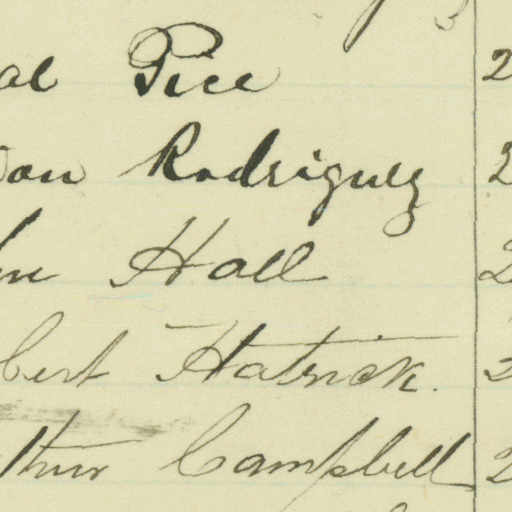 al Pice 2
Don Rodriguez 2
hn Hall 2
bert Hatrick. 2
thur Campbell 2